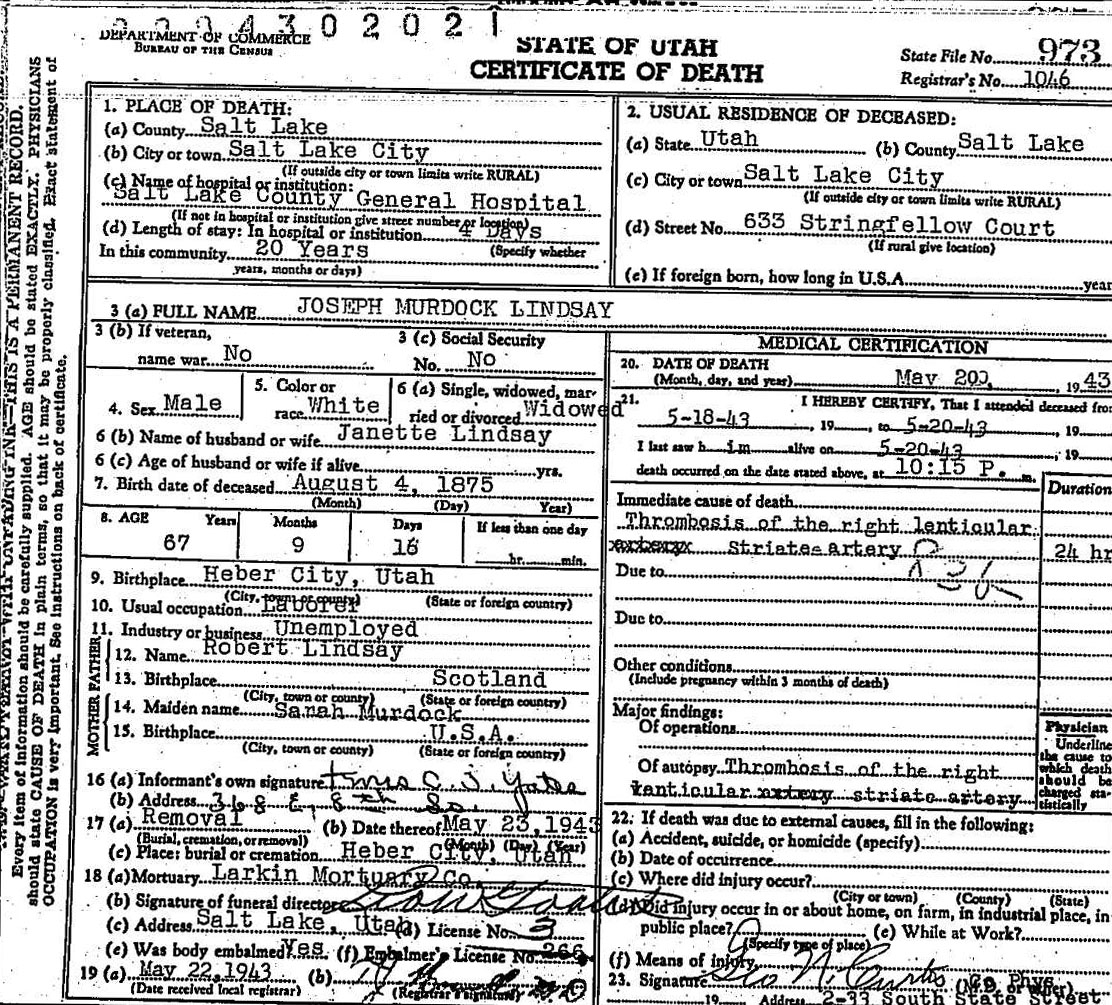 0 0 0 4 3 0 2 0 2 1
DEPARTMENT OF COMMERCE
BUREAU OF THE CENSUS
STATE OF UTAH
CERTIFICATE OF DEATH
State File No. 973
Registrar's No. 1046
THIS IS A PERMANENT RECORD.
Every item of information should be carefully supplied. AGE should be stated EXACTLY. PHYSICIANS
should state CAUSE OF DEATH in plain terms, so that it may be properly classified. Exact statement of
OCCUPATION is very important. See instructions on back of certificate.
1. PLACE OF DEATH:
(a) County Salt Lake
(b) City or town Salt Lake City
(If outside city or town limits write RURAL)
(c) Name of hospital or institution:
Salt Lake County General Hospital
(If not in hospital or institution give street number or location)
(d) Length of stay: In hospital or institution 4 Days
In this community 20 Years (Specify whether
years, months or days)
2. USUAL RESIDENCE OF DECEASED:
(a) State Utah (b) County Salt Lake
(c) City or town Salt Lake City
(If outside city or town limits write RURAL)
(d) Street No. 633 Stringfellow Court
(If rural give location)
(e) If foreign born, how long in U.S.A. year
3 (a) FULL NAME JOSEPH MURDOCK LINDSAY
3 (b) If veteran, 3 (c) Social Security
name war No No. No
4. Sex Male 5. Color or race White 6 (a) Single, widowed, married or divorced Widowed
6 (b) Name of husband or wife Janette Lindsay
6 (c) Age of husband or wife if alive yrs.
7. Birth date of deceased August 4, 1875
(Month) (Day) Year)
8. AGE Years Months Days If less than one day
67 9 16 hr. min.
9. Birthplace Heber City, Utah
(City, town or county) (State or foreign country)
10. Usual occupation Laborer
11. Industry or business Unemployed
FATHER
12. Name Robert Lindsay
13. Birthplace Scotland
(City, town or county) (State or foreign country)
MOTHER
14. Maiden name Sarah Murdock
15. Birthplace U.S.A.
(City, town or county) (State or foreign country)
16 (a) Informant's own signature C. J. Yates
(b) Address 368 E, 8th So.
17 (a) Removal (b) Date thereof May 23, 1943
(Burial, cremation, or removal) (Month) (Day) (Year)
(c) Place: burial or cremation Heber City, Utah
18 (a) Mortuary Larkin Mortuary Co
(b) Signature of funeral director
(c) Address Salt Lake, Utah (d) License No. 3
(e) Was body embalmed? Yes (f) Embalmer's License No. 266
19 (a) May 22, 1943 (b)
(Date received local registrar) (Registrar's signature)
MEDICAL CERTIFICATION
20. DATE OF DEATH
(Month, day, and year) May 20, 1943
21. I HEREBY CERTIFY, That I attended deceased from
5-18-43, 19 , to 5-20-43, 19
I last saw him alive on 5-20-43, 19
death occurred on the date stated above, at 10:15 P. m.
Duration
Immediate cause of death
Thrombosis of the right lenticular
artery Striate artery 24 hr
Due to
Due to
Other conditions
(Include pregnancy within 3 months of death)
Major findings:
Of operations
Of autopsy Thrombosis of the right
lanticular artery striate artery
Physician
Underline
the cause to
which death
should be
charged sta-
tistically
22. If death was due to external causes, fill in the following:
(a) Accident, suicide, or homicide (specify)
(b) Date of occurrence
(c) Where did injury occur?
(City or town) (County) (State)
(d) Did injury occur in or about home, on farm, in industrial place, in
public place? (e) While at Work?
(Specify type of place)
(f) Means of injury
23. Signature Geo N. Curtis Co Phys
(M.D. or other)
19 Address 2-33 South State Street